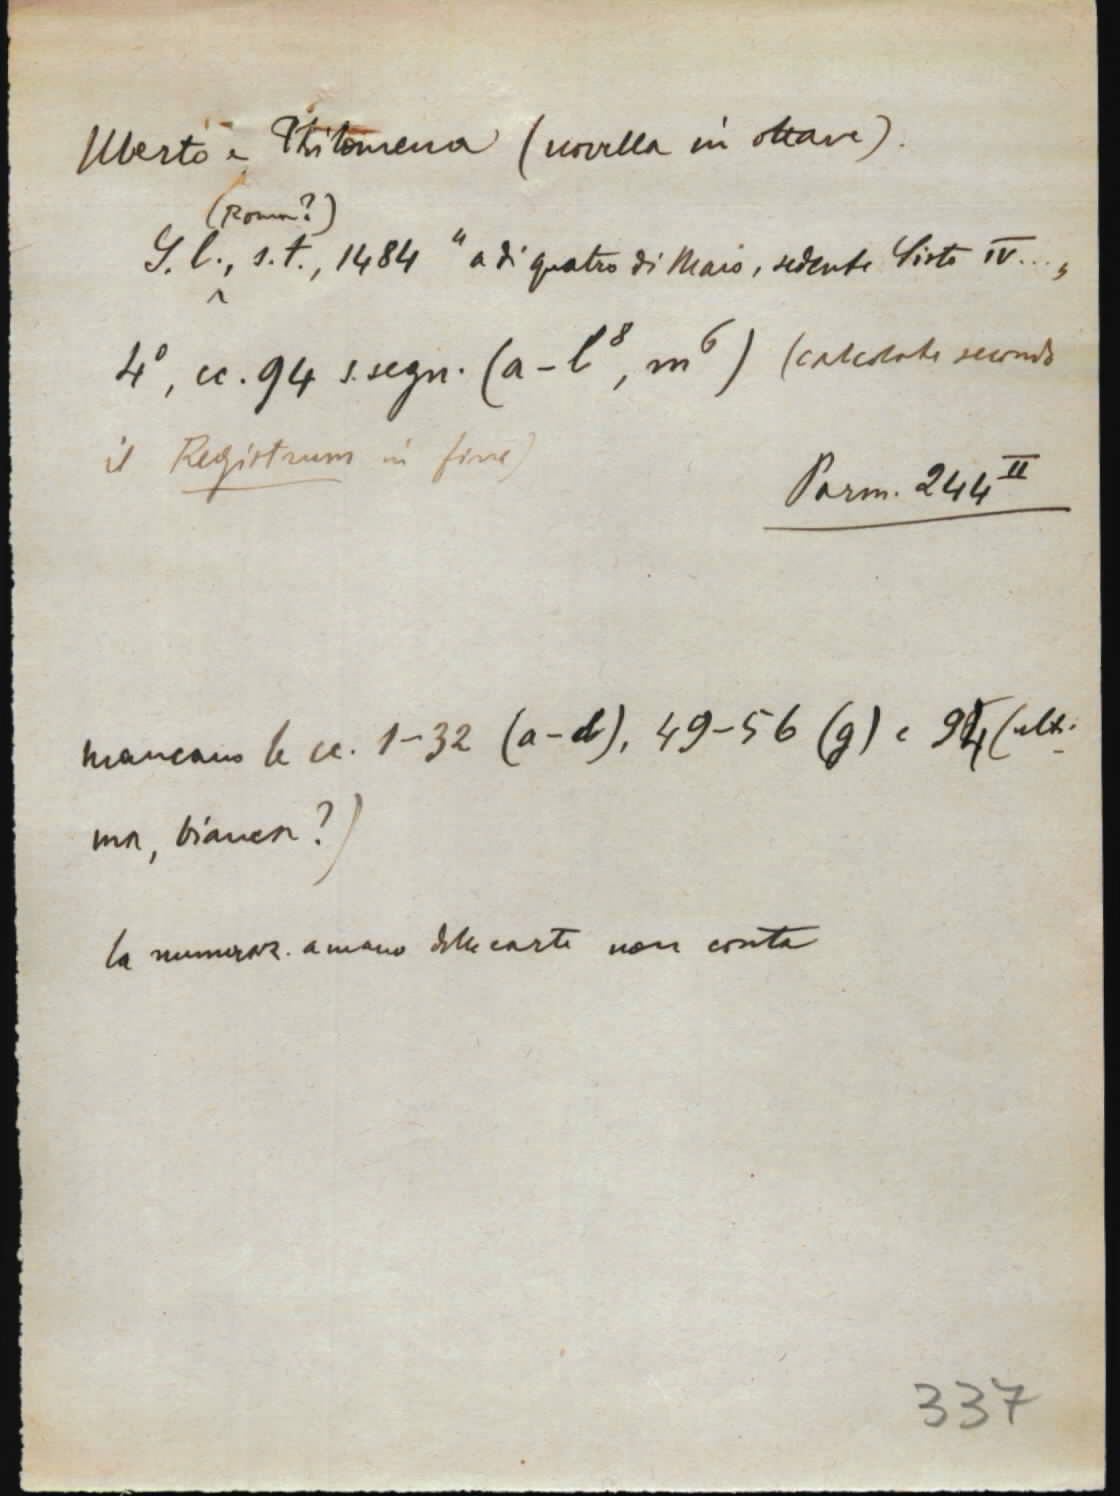 Uberto e Philomena (novella in ottave).
(Roma?)
S. l., s. t., 1484 "a di quatro di Maio, sedente Sisto IV...„
4°, cc. 94 s. segn. (a-l⁸, m⁶) (calcolate secondo
il Registrum in fine)
Parm. 244ᴵᴵ
mancano le cc. 1-32 (a-d), 49-56 (g) e 94 (ulti-
ma, bianca?)
la numeraz. a mano delle carte non conta
337